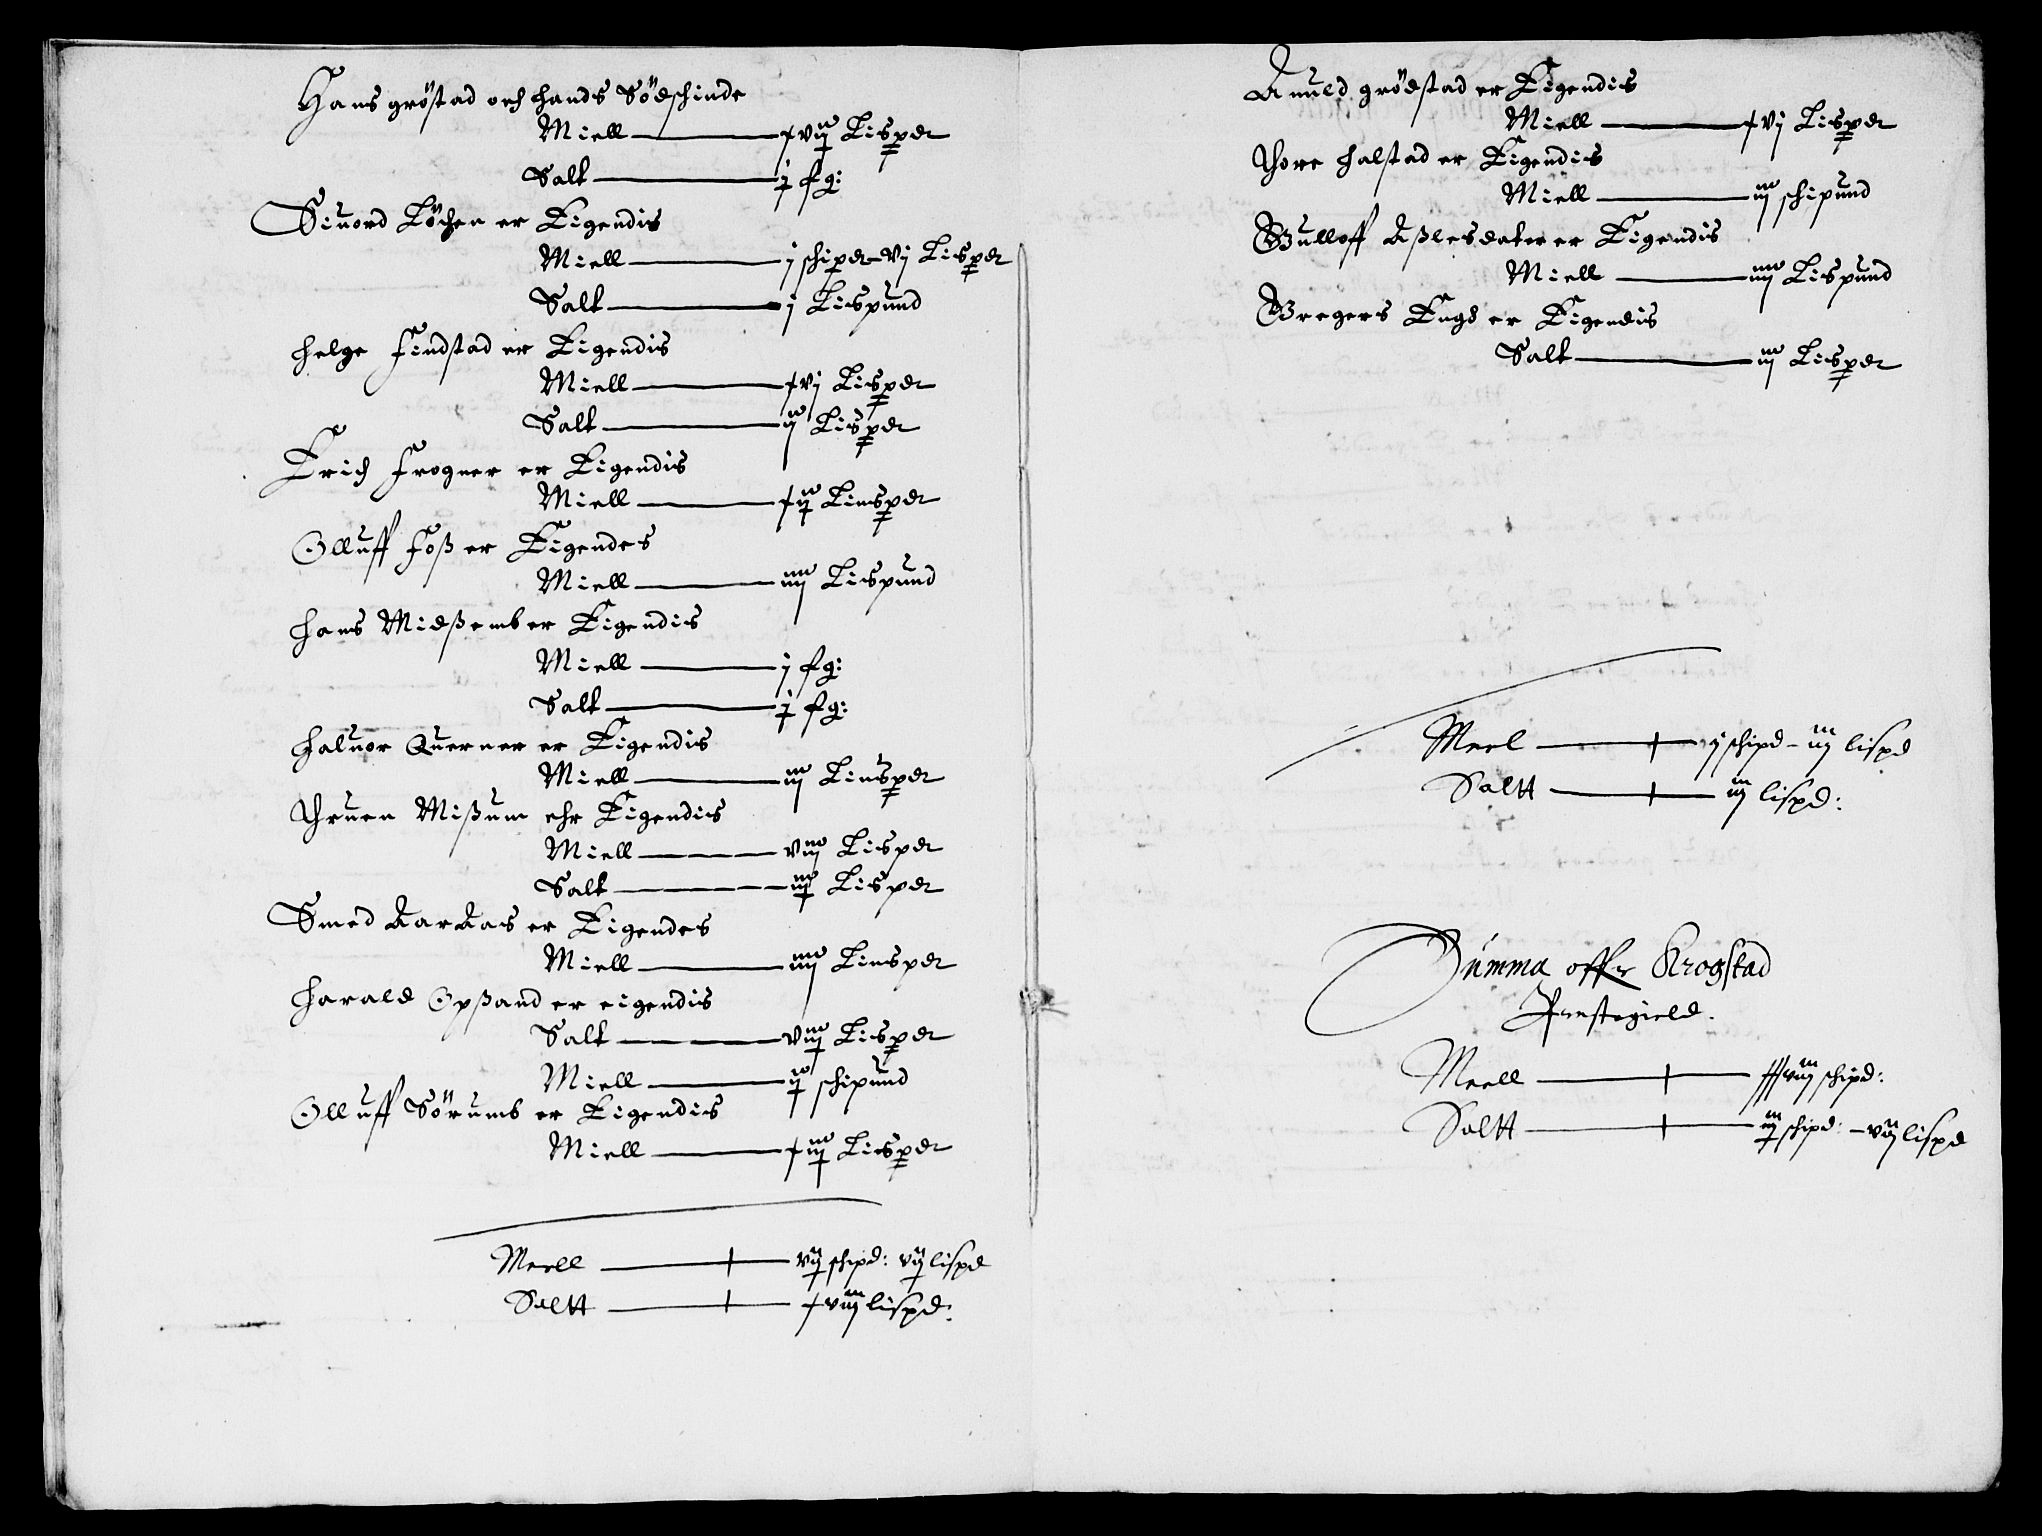 Hans gröstad och hands Södschinde
Miell — xvij Lispdt
Salt — j fg:
Siuord Löchen er Eigendis
Miell — j schipdt vj Lispdt
Salt — j Lispund
helge findstad er Eigendis
Miell — xvj Lispdt
Salt — ij Lispdt
Erich frogner er Eigendis
Miell — xij Limspdt
Olluff foß er Eigendes
Miell — iiij Lispund
hans Midßemb er Eigendis
Miell — j fg:
Salt — j fg:
haluor Querner er Eigendis
Miell — iij Limspdt
Thruen Mißum ehr Eigendis
Miell — viij Lispdt
Salt — iij Lispdt
Smed AarAas er Eigendes
Miell — iiij Limspdt
harald Opßand er eigendis
Salt — viij Lispdt
Miell — ij schipund
Olluff Sörumb er Eigendis
Miell — xiij Lispdt
Meell — vij schipd: vij lispd
Saltt — xviij lispd:
Anuld grödstad er Eigendis
Miell — xvj Lispdt
Thore halstad er Eigendis
Miell — iij schipund
Gulloff Aßlesdater er Eigendis
Miell — iiij Lispund
Gregers Engd er Eigendis
Salt — iij Lispdt
Meel — j schipd – iij lispd
Saltt — iij lispd:
Summa offr Krogstad
Prestegield.
Meell — xxxviij schipd:
Saltt — iij schipd: – vij lispd